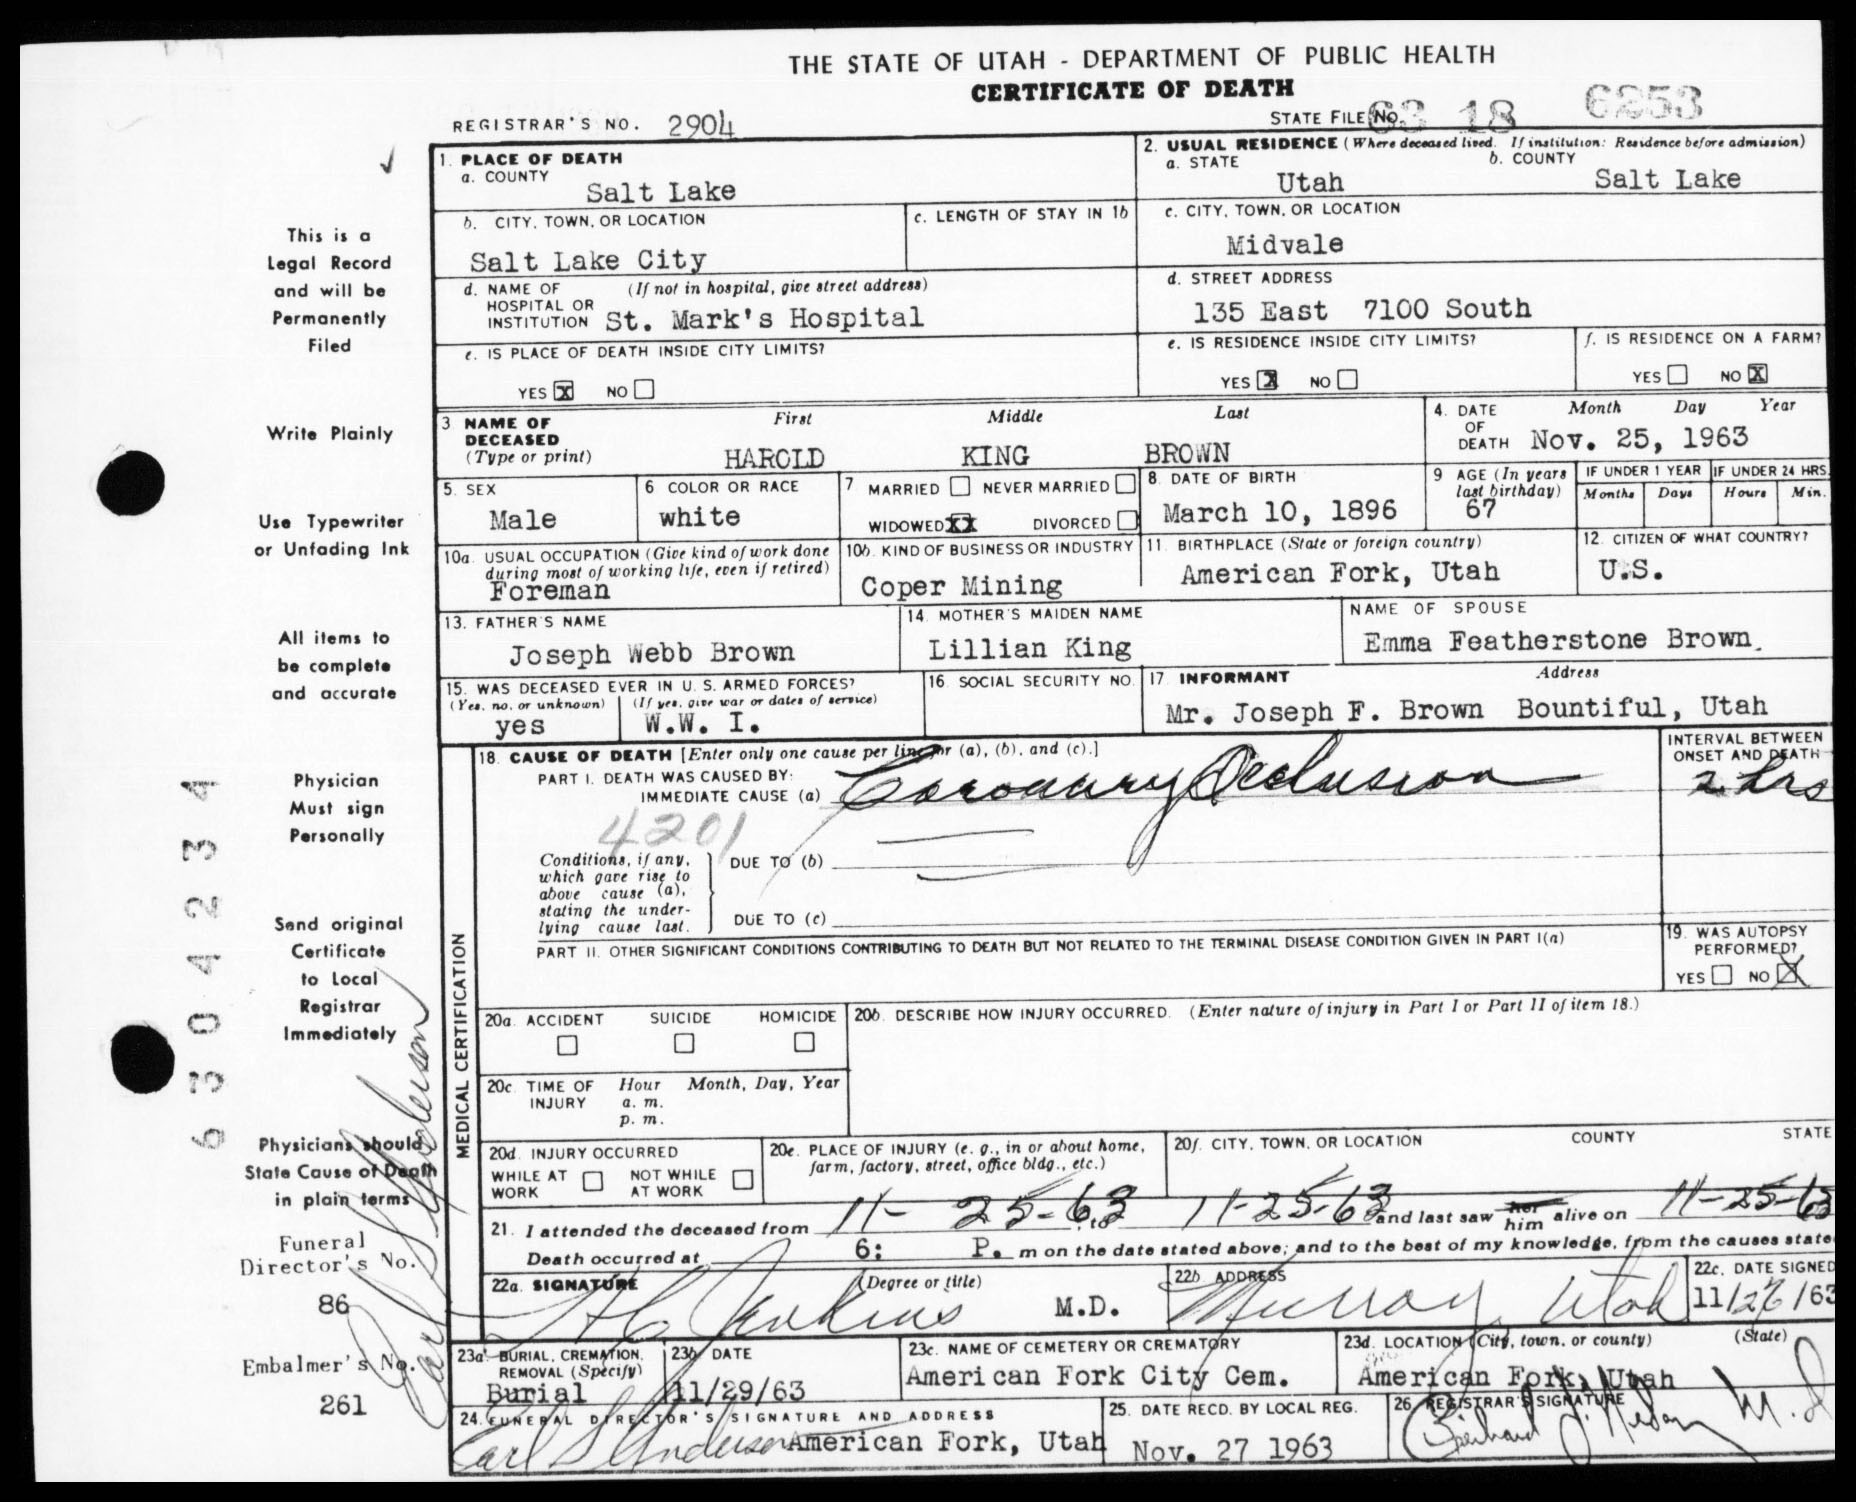 THE STATE OF UTAH - DEPARTMENT OF PUBLIC HEALTH
CERTIFICATE OF DEATH
REGISTRAR'S NO. 2904
STATE FILE NO. 63 18 6253
This is a
Legal Record
and will be
Permanently
Filed
Write Plainly
Use Typewriter
or Unfading Ink
All items to
be complete
and accurate
Physician
Must sign
Personally
Send original
Certificate
to Local
Registrar
Immediately
Physicians should
State Cause of Death
in plain terms
Funeral
Director's No.
86
Embalmer's No.
261
Earl S Anderson
6304234
1. PLACE OF DEATH
a. COUNTY
Salt Lake
2. USUAL RESIDENCE (Where deceased lived. If institution: Residence before admission)
a. STATE b. COUNTY
Utah Salt Lake
b. CITY, TOWN, OR LOCATION
Salt Lake City
c. LENGTH OF STAY IN 1b
c. CITY, TOWN, OR LOCATION
Midvale
d. NAME OF (If not in hospital, give street address)
HOSPITAL OR
INSTITUTION St. Mark's Hospital
d. STREET ADDRESS
135 East 7100 South
e. IS PLACE OF DEATH INSIDE CITY LIMITS?
YES X NO
e. IS RESIDENCE INSIDE CITY LIMITS?
YES X NO
f. IS RESIDENCE ON A FARM?
YES NO X
3 NAME OF First Middle Last
DECEASED
(Type or print) HAROLD KING BROWN
4. DATE Month Day Year
OF
DEATH Nov. 25, 1963
5. SEX
Male
6 COLOR OR RACE
white
7 MARRIED NEVER MARRIED
WIDOWED XX DIVORCED
8. DATE OF BIRTH
March 10, 1896
9 AGE (In years
last birthday)
67
IF UNDER 1 YEAR IF UNDER 24 HRS.
Months Days Hours Min.
10a. USUAL OCCUPATION (Give kind of work done
during most of working life, even if retired)
Foreman
10b. KIND OF BUSINESS OR INDUSTRY
Coper Mining
11. BIRTHPLACE (State or foreign country)
American Fork, Utah
12. CITIZEN OF WHAT COUNTRY?
U.S.
13. FATHER'S NAME
Joseph Webb Brown
14. MOTHER'S MAIDEN NAME
Lillian King
NAME OF SPOUSE
Emma Featherstone Brown.
15. WAS DECEASED EVER IN U. S. ARMED FORCES?
(Yes, no, or unknown) (If yes, give war or dates of service)
yes W.W. I.
16. SOCIAL SECURITY NO.
17 INFORMANT Address
Mr. Joseph F. Brown Bountiful, Utah
MEDICAL CERTIFICATION
18. CAUSE OF DEATH [Enter only one cause per line for (a), (b), and (c).]
PART I. DEATH WAS CAUSED BY:
IMMEDIATE CAUSE (a) Coronary Occlusion
INTERVAL BETWEEN
ONSET AND DEATH
2 hrs
4201
Conditions, if any,
which gave rise to
above cause (a),
stating the under-
lying cause last.
DUE TO (b)
DUE TO (c)
PART II. OTHER SIGNIFICANT CONDITIONS CONTRIBUTING TO DEATH BUT NOT RELATED TO THE TERMINAL DISEASE CONDITION GIVEN IN PART I(a)
19. WAS AUTOPSY
PERFORMED?
YES NO X
20a. ACCIDENT SUICIDE HOMICIDE
20b. DESCRIBE HOW INJURY OCCURRED. (Enter nature of injury in Part I or Part II of item 18.)
20c. TIME OF Hour Month, Day, Year
INJURY a. m.
p. m.
20d. INJURY OCCURRED
WHILE AT NOT WHILE
WORK AT WORK
20e. PLACE OF INJURY (e. g., in or about home,
farm, factory, street, office bldg., etc.)
20f. CITY, TOWN, OR LOCATION COUNTY STATE
21. I attended the deceased from 11-25-63 to 11-25-63 and last saw her him alive on 11-25-63
Death occurred at 6: P. m on the date stated above; and to the best of my knowledge, from the causes state
22a. SIGNATURE (Degree or title)
H C Jenkins M.D.
22b. ADDRESS
Murray, Utah
22c. DATE SIGNED
11/26/63
23a. BURIAL, CREMATION,
REMOVAL (Specify)
Burial
23b. DATE
11/29/63
23c. NAME OF CEMETERY OR CREMATORY
American Fork City Cem.
23d. LOCATION (City, town, or county) (State)
American Fork, Utah
24. FUNERAL DIRECTOR'S SIGNATURE AND ADDRESS
Earl S Anderson American Fork, Utah
25. DATE RECD. BY LOCAL REG.
Nov. 27 1963
26 REGISTRAR'S SIGNATURE
M.D